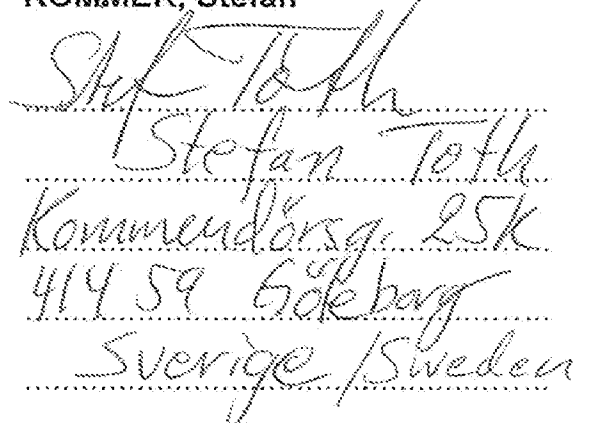 ROMMER, Stefan
Stef Toth
Stefan Toth
Kommendörsg. 25K
414 59 Göteborg
Sverige /Sweden